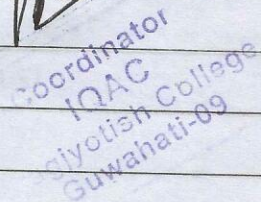 Coordinator
IQAC
gjyotish College
Guwahati-09